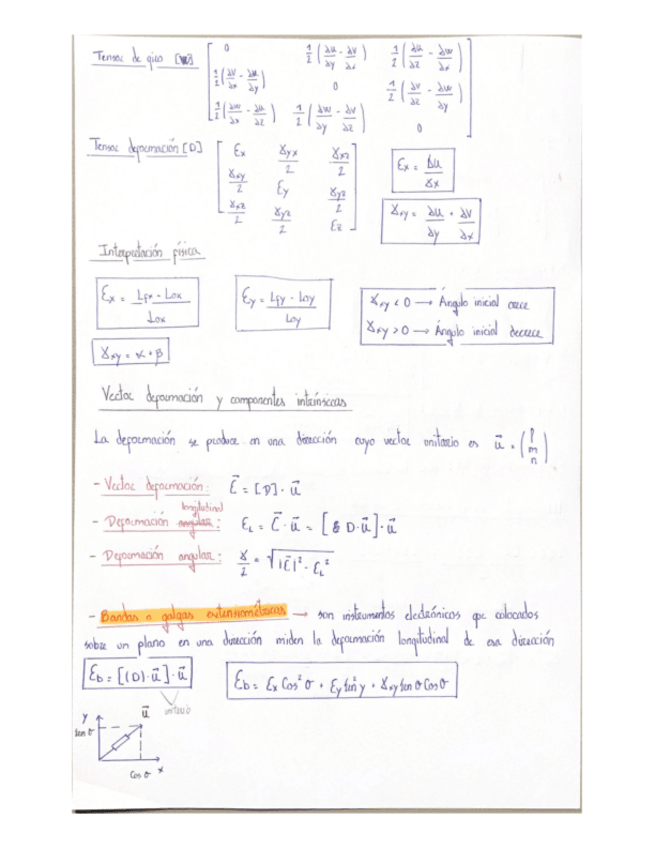 Tensor de giro [W] [ 0 1/2(∂u/∂y - ∂v/∂x) 1/2(∂u/∂z - ∂w/∂x)
1/2(∂v/∂x - ∂u/∂y) 0 1/2(∂v/∂z - ∂w/∂y)
1/2(∂w/∂x - ∂u/∂z) 1/2(∂w/∂y - ∂v/∂z) 0 ]
Tensor deformación [D] [ Ex γyx/2 γxz/2
γxy/2 Ey γyz/2
γxz/2 γyz/2 Ez ]
Ex = ∂u/∂x
γxy = ∂u/∂y + ∂v/∂x
Interpretación física
Ex = Lfx - Lox / Lox
Ey = Lfy - Loy / Loy
γxy < 0 → Ángulo inicial crece
γxy > 0 → Ángulo inicial decrece
γxy = α + β
Vector deformación y componentes intrínsecas
La deformación se produce en una dirección cuyo vector unitario es u⃗ = (l m n)
- Vector deformación: E⃗ = [D] · u⃗
longitudinal
- Deformación angular: EL = E⃗ · u⃗ = [D·u⃗]·u⃗
- Deformación angular: γ/2 = √|E⃗|² - EL²
- Bandas o galgas extensiométricas → son instrumentos electrónicos que colocados
sobre un plano en una dirección miden la deformación longitudinal de esa dirección
Eb = [(D)·u⃗]·u⃗
Eb = Ex Cos²θ + Ey sen²y + γxy sen θ Cos θ
unitario
y
u⃗
sen θ
Cos θ
x